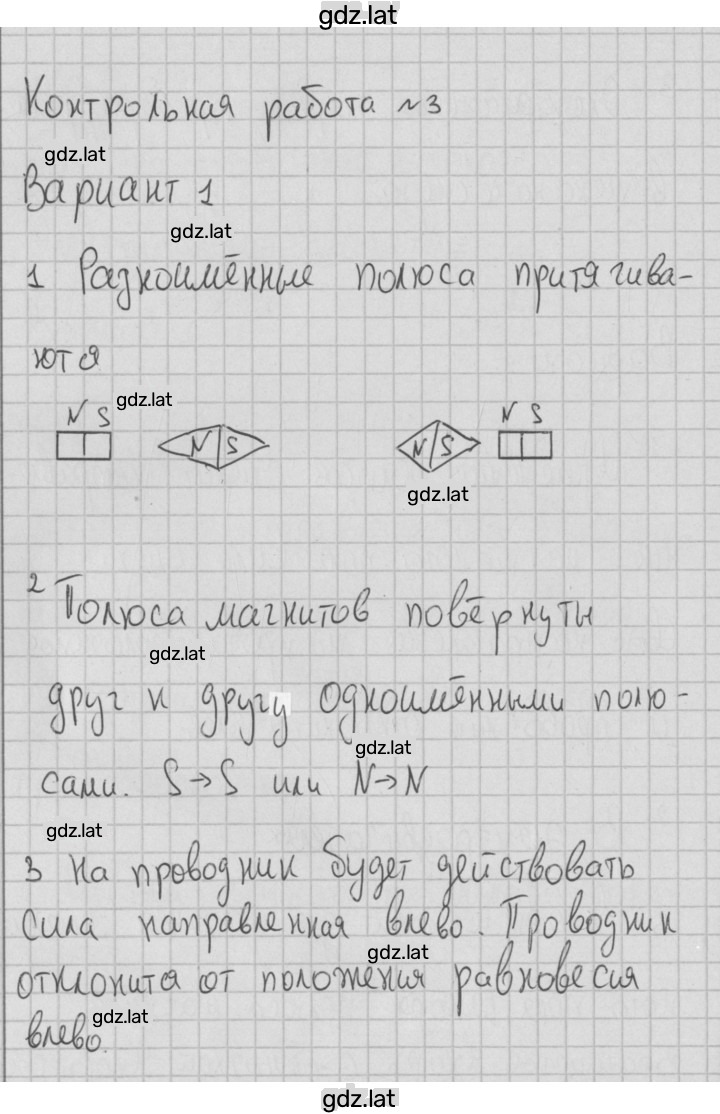 gdz.lat
Контрольная работа №3
gdz.lat
Вариант 1
gdz.lat
1 Разноимённые полюса притягива-
ются
gdz.lat
N S N S N S N S
gdz.lat
2 Полюса магнитов повёрнуты
gdz.lat
друг к другу одноимёнными полю-
gdz.lat
сами. S→S или N→N
gdz.lat
3 На проводник будет действовать
сила направленная влево. Проводник
gdz.lat
отклонится от положения равновесия
gdz.lat
влево.
gdz.lat